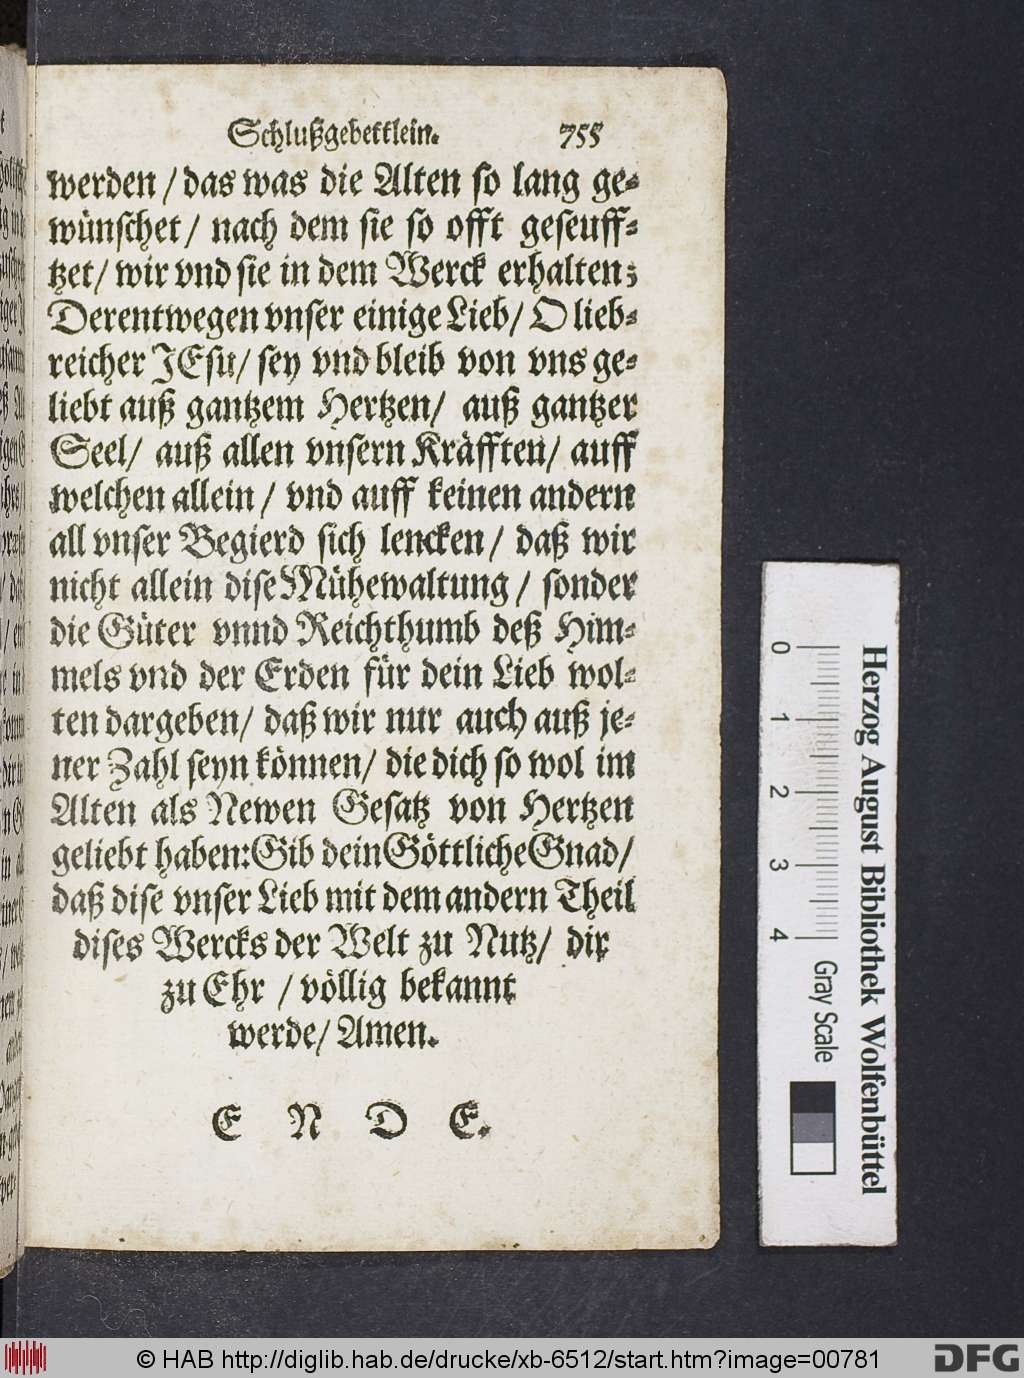 Schlußgebettlein. 755
werden / das was die Alten so lang ge-
wünschet / nach dem sie so offt geseuff-
tzet / wir vnd sie in dem Werck erhalten;
Derentwegen vnser einige Lieb / O lieb-
reicher JEsu / sey vnd bleib von vns ge-
liebt auß gantzem Hertzen / auß gantzer
Seel / auß allen vnsern Kräfften / auff
welchen allein / vnd auff keinen andern
all vnser Begierd sich lencken / daß wir
nicht allein dise Mühewaltung / sonder
die Güter vnnd Reichthumb deß Him-
mels vnd der Erden für dein Lieb wol-
ten dargeben / daß wir nur auch auß je-
ner Zahl seyn können / die dich so wol im
Alten als Newen Gesatz von Hertzen
geliebt haben: Gib dein Göttliche Gnad /
daß dise vnser Lieb mit dem andern Theil
dises Wercks der Welt zu Nutz / dir
zu Ehr / völlig bekannt
werde / Amen.
E N D E.
Herzog August Bibliothek Wolfenbüttel
0 1 2 3 4 Gray Scale
© HAB http://diglib.hab.de/drucke/xb-6512/start.htm?image=00781
DFG